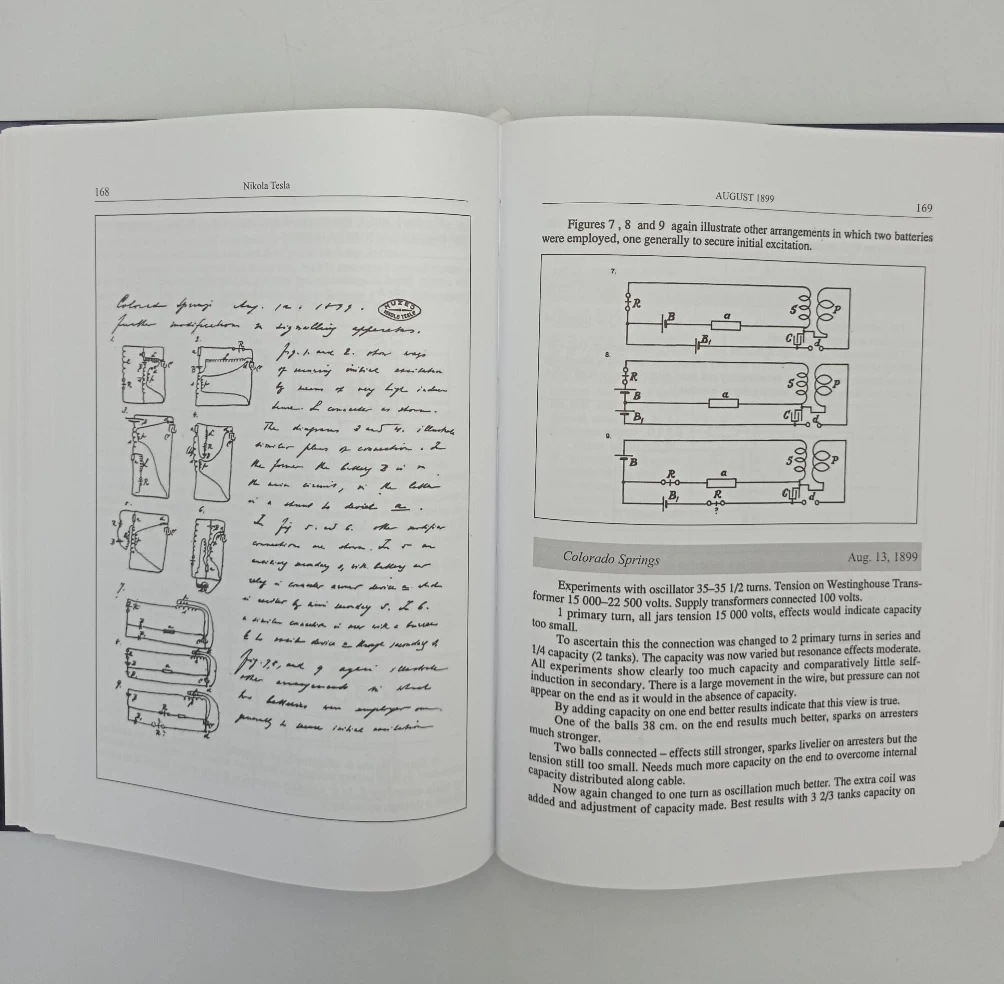 168
Nikola Tesla
Colorado Springs Aug. 12. 1899.
MUZEJ
NIKOLE TESLE
further modifications in signalling apparatus.
1.
2.
fig. 1. and 2. show ways
of securing initial excitation
by means of very high induc
tance. L connected as shown.
3.
4.
The diagrams 3 and 4. illustrate
similar plans of connection. In
the former the battery B is in
the main circuit, in the latter
in a shunt to device a.
5.
6.
In fig 5. and 6. other modified
connections are shown. In 5 an
exciting secondary s, with battery and
relay is connected around device a which
is excited by main secondary S. In 6.
a similar connection is used with a
to device a through secondary S
7.
8.
9.
fig. 7, 8, and 9 again illustrate
other arrangements in which
two batteries were employed one
generally to secure initial excitation
AUGUST 1899
169
Figures 7 , 8 and 9 again illustrate other arrangements in which two batteries
were employed, one generally to secure initial excitation.
7.
R
B
a
B₁
S
P
C
d
8.
R
B
B₁
a
S
P
C
d
9.
B
R
a
B₁
R
?
S
P
C
d
Colorado Springs
Aug. 13, 1899
Experiments with oscillator 35–35 1/2 turns. Tension on Westinghouse Trans-
former 15 000–22 500 volts. Supply transformers connected 100 volts.
1 primary turn, all jars tension 15 000 volts, effects would indicate capacity
too small.
To ascertain this the connection was changed to 2 primary turns in series and
1/4 capacity (2 tanks). The capacity was now varied but resonance effects moderate.
All experiments show clearly too much capacity and comparatively little self-
induction in secondary. There is a large movement in the wire, but pressure can not
appear on the end as it would in the absence of capacity.
By adding capacity on one end better results indicate that this view is true.
One of the balls 38 cm. on the end results much better, sparks on arresters
much stronger.
Two balls connected – effects still stronger, sparks livelier on arresters but the
tension still too small. Needs much more capacity on the end to overcome internal
capacity distributed along cable.
Now again changed to one turn as oscillation much better. The extra coil was
added and adjustment of capacity made. Best results with 3 2/3 tanks capacity on